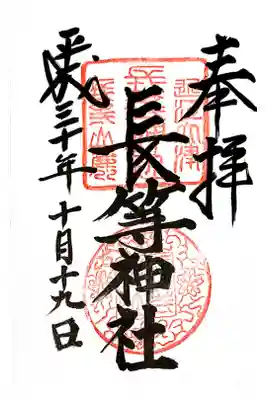 奉拝
長等神社
平成三十年十月十九日